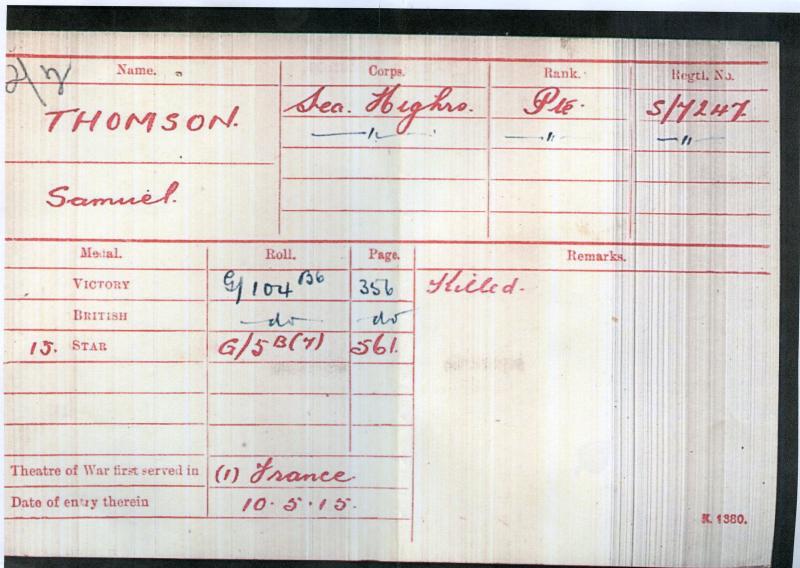 Name. Corps. Rank. Regtl. No.
THOMSON. Sea. Highrs. Pte. S/7247
—"— —"— —"—
Samuel.
Medal. Roll. Page. Remarks.
VICTORY G/104 B6 356 Killed.
BRITISH do do
15. STAR G/5 B(7) 561.
Theatre of War first served in (1) France
Date of entry therein 10.5.15.
K. 1380.